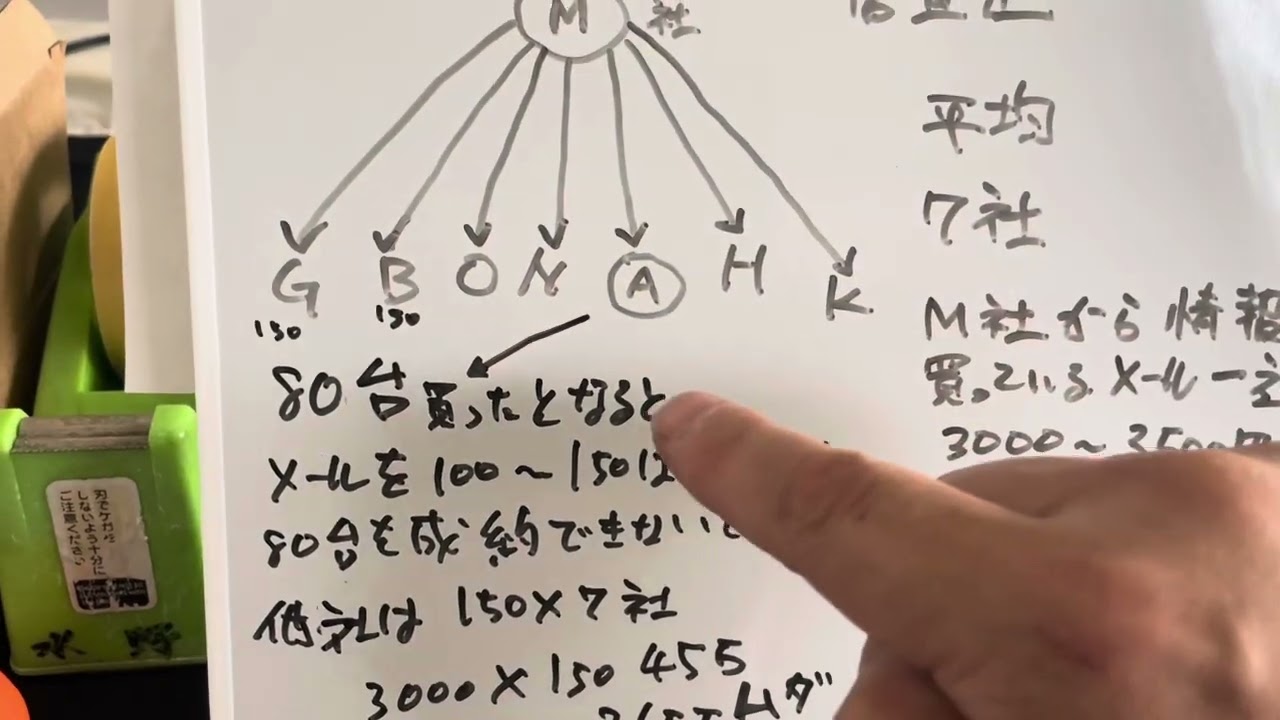 M社
平均
7社
G B O N A H K
150 150
M社から情報
買っているメール一
3000〜3500円
80台買ったとなると
メールを100〜150は
80台を成約できない
他社は 150×7社
3000×150 455
刃でケガを
しないよう十分に
ご注意ください
水 野